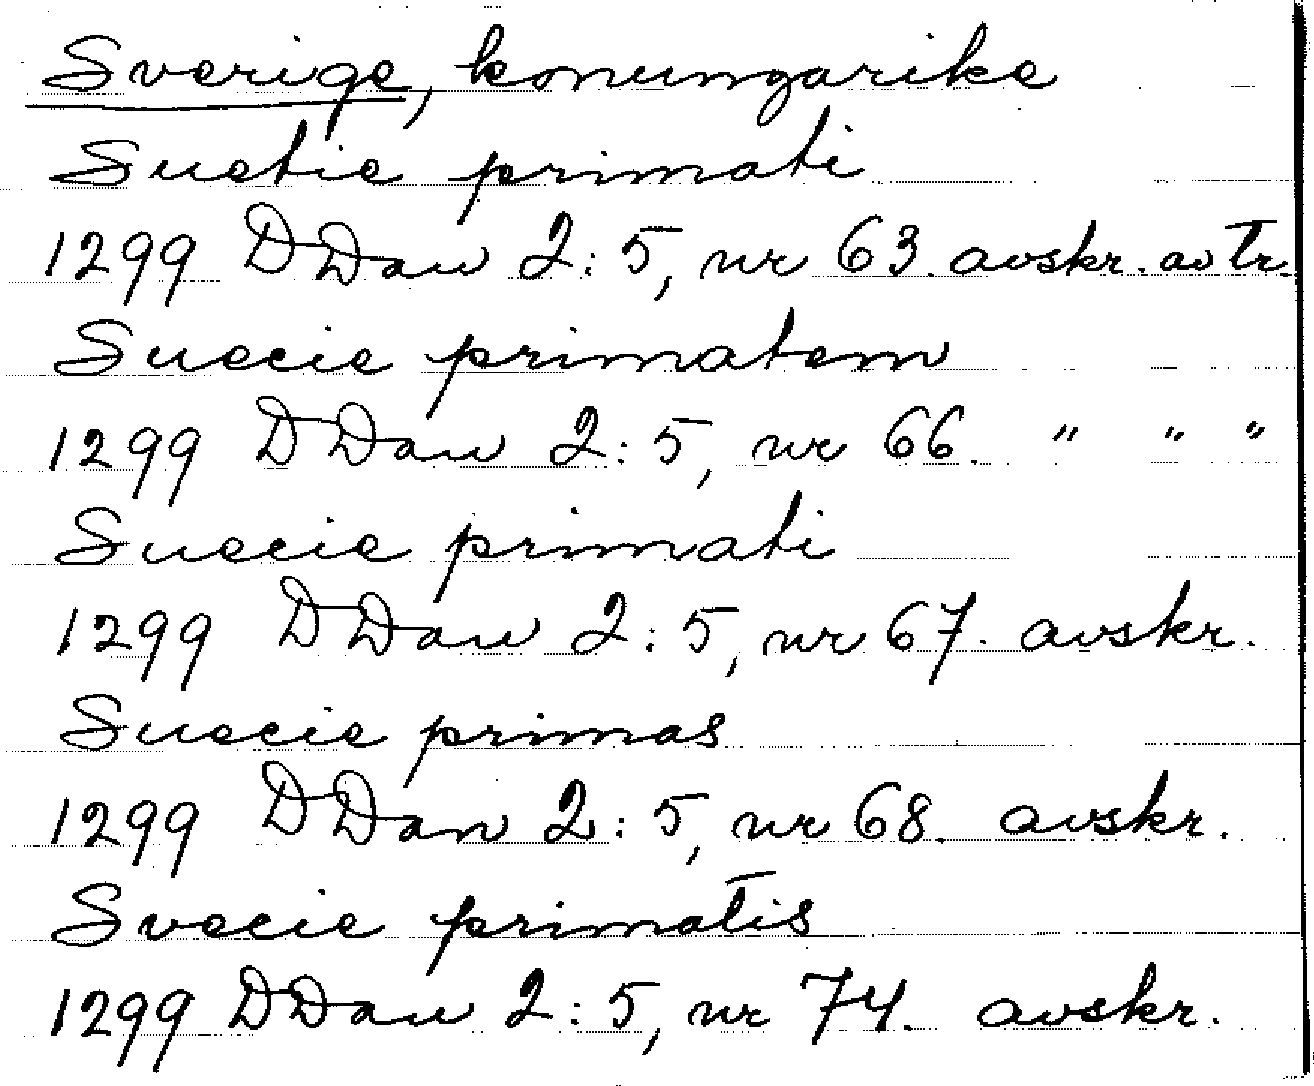 Sverige, konungarike
Suetie primati
1299 DDan 2:5, nr 63. avskr. av tr.
Suecie primatem
1299 DDan 2:5, nr 66. " " "
Suecie primati
1299 DDan 2:5, nr 67. avskr.
Suecie primas
1299 DDan 2:5, nr 68. avskr.
Svecie primatis
1299 DDan 2:5, nr 74. avskr.